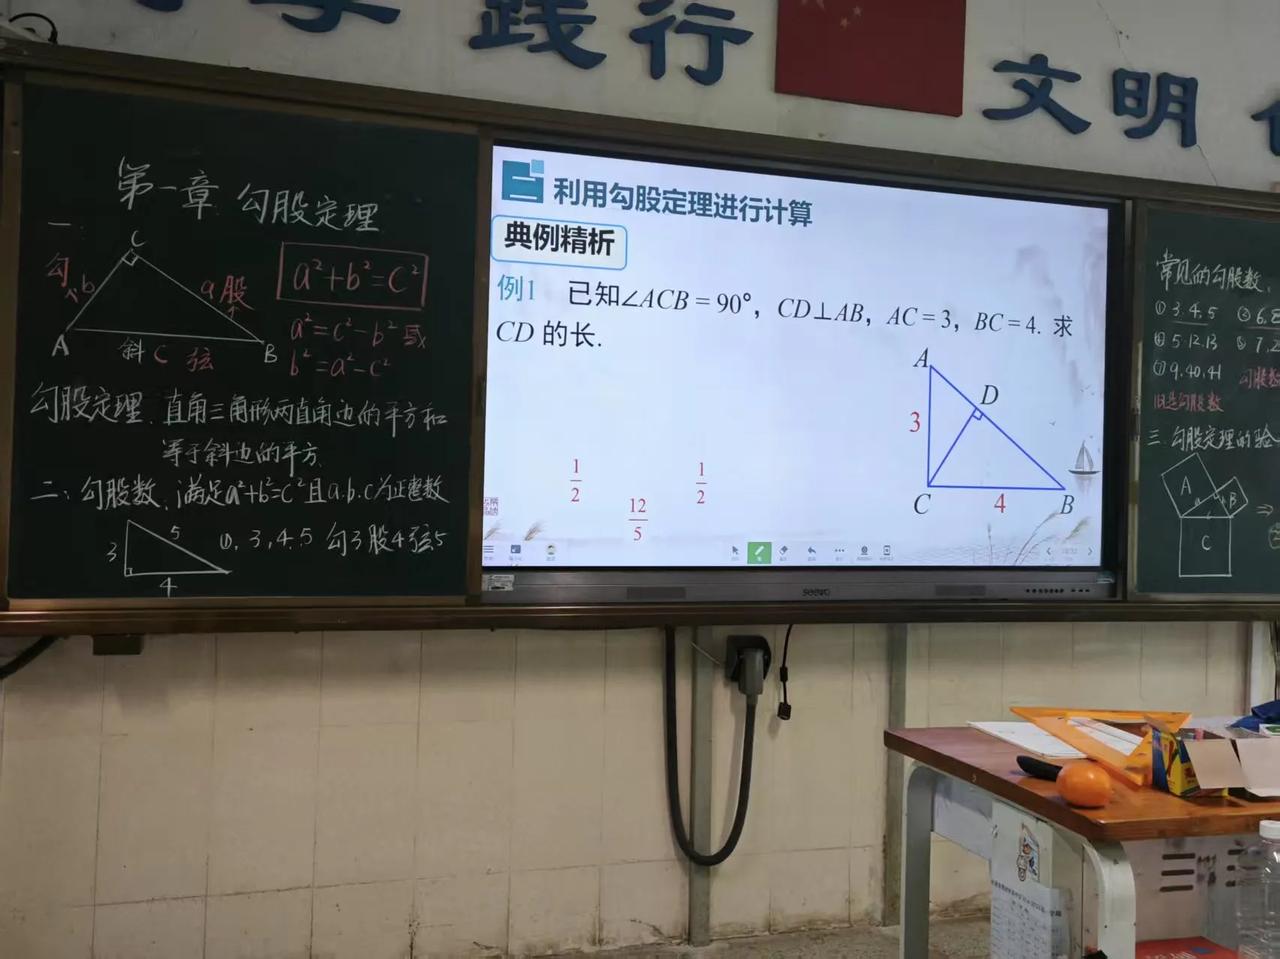 践行
文明
第一章 勾股定理
一.
C
勾
b
a 股
A
斜 C 弦
B
a²+b²=c²
a²=c²-b² 或
b²=a²-c²
勾股定理.直角三角形两直角边的平方和
等于斜边的平方.
二、勾股数.满足a²+b²=c²且a.b.c为正整数
3
5
4
①. 3, 4. 5 勾3股4弦5
利用勾股定理进行计算
典例精析
例1 已知∠ACB = 90°，CD⊥AB，AC = 3，BC = 4. 求
CD 的长.
A
D
3
C
4
B
1/2
12/5
1/2
seewo
常见的勾股数.
① 3. 4. 5
5. 12. 13
7, 2
9. 40. 41
勾股数
三. 勾股定理的验
A
a
B
C